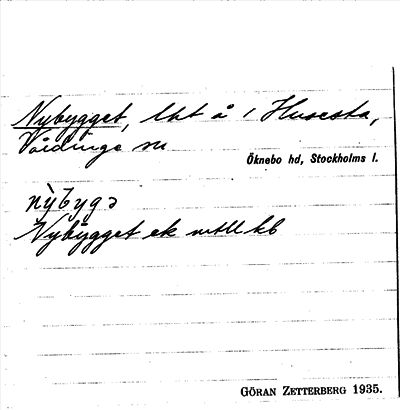 Nybygget, lht å 1 Husesta,
Vårdinge sn
Öknebo hd, Stockholms l.
nỳbygə
Nybygget ek
GÖRAN ZETTERBERG 1935.